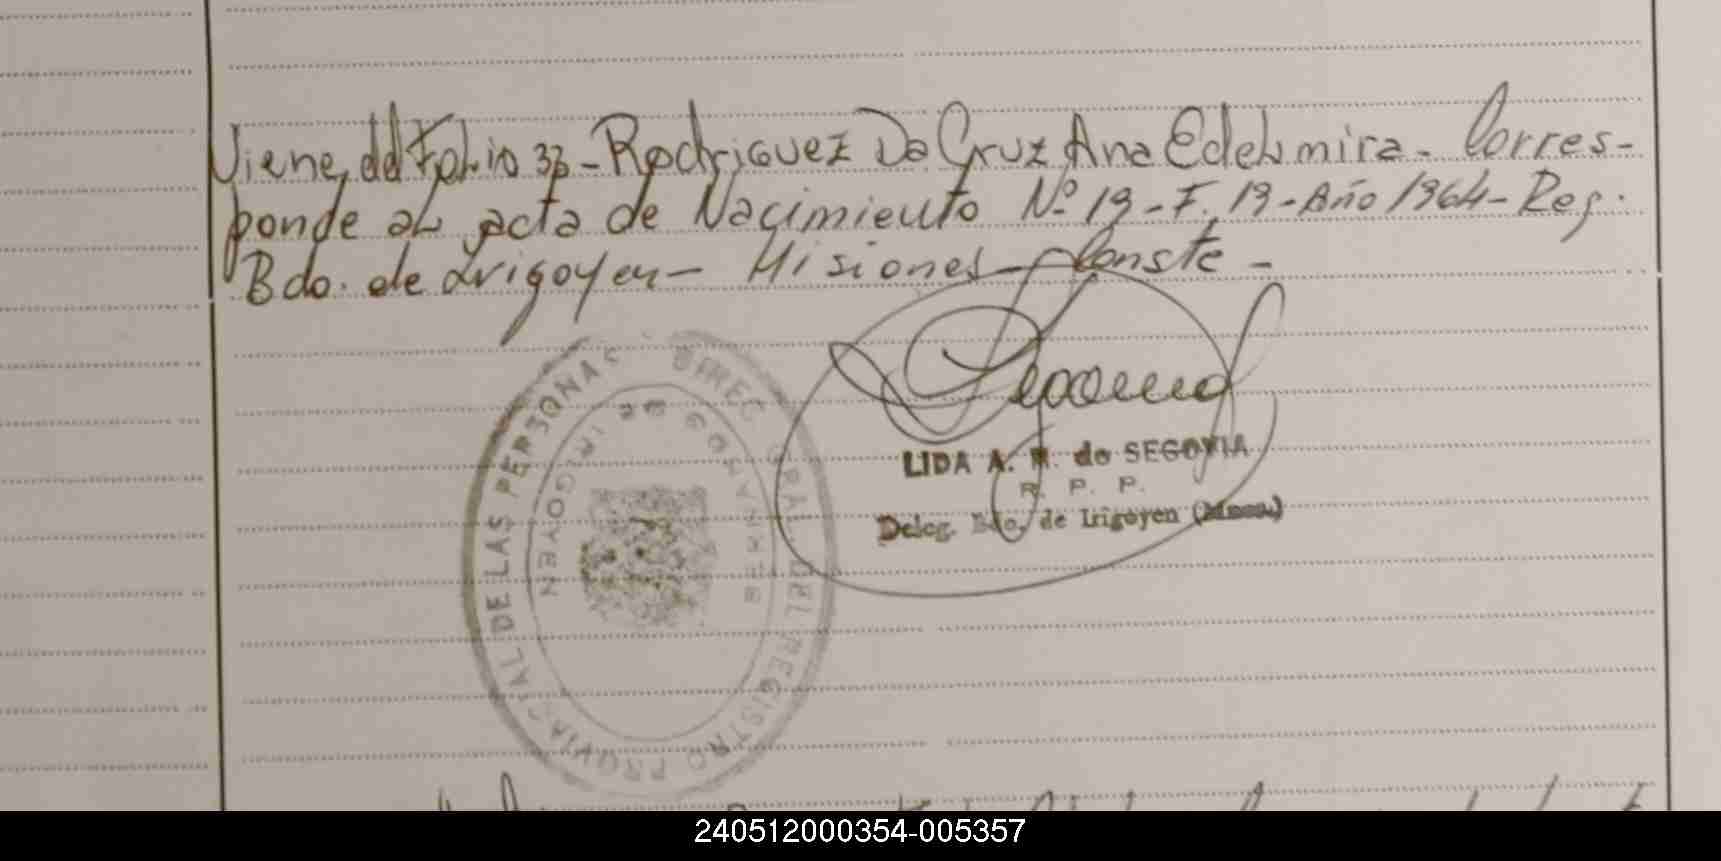 Viene del Folio 33 - Rodriguez Da Cruz Ana Edelmira - Corres-
ponde al acta de Nacimiento Nº 19 - F. 19 - Año 1964 - Reg.
Bdo. de Irigoyen - Misiones - Conste -
LIDA A. M. de SEGOVIA
R. P. P.
Deleg. Bdo. de Irigoyen (Mnes.)
DIREC. GRAL. DEL REGISTRO PROVINCIAL DE LAS PERSONAS
DE IRIGOYEN
240512000354-005357